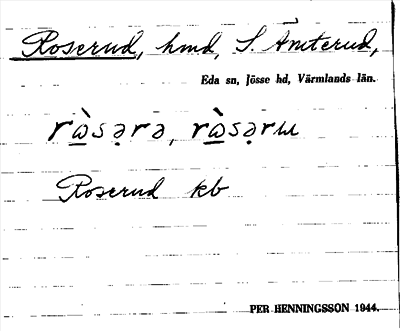 Roserud, hmd, S. Åmterud,
Eda sn, Jösse hd, Värmlands län.
rὼsərə, rὼsərɯ
Roserud kb
PER HENNINGSSON 1944.